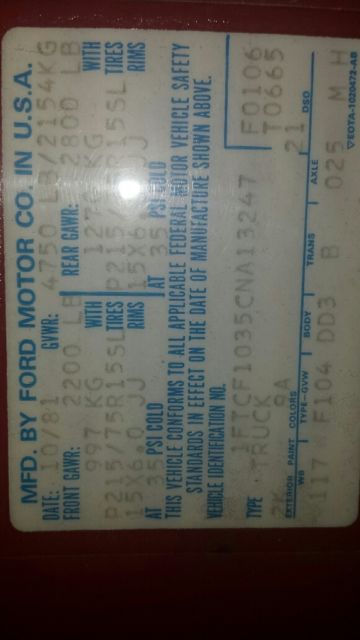 MFD. BY FORD MOTOR CO. IN U.S.A.
DATE: 10/81 GVWR: 4750 LB/2154KG
FRONT GAWR: 2200 LB REAR GAWR: 2800 LB
997 KG WITH 1270 KG WITH
P215/75R15SL TIRES P215/75R15SL TIRES
15X6.0 JJ RIMS 15X6.0 JJ RIMS
AT 35 PSI COLD AT 35 PSI COLD
THIS VEHICLE CONFORMS TO ALL APPLICABLE FEDERAL MOTOR VEHICLE SAFETY
STANDARDS IN EFFECT ON THE DATE OF MANUFACTURE SHOWN ABOVE.
VEHICLE IDENTIFICATION NO. F0106
1FTCF1035CNA13247 T0665
TYPE TRUCK 21
2K 9A
EXTERIOR PAINT COLORS DSO
WB TYPE-GVW BODY TRANS AXLE
117 F104 DD3 B 025 M H
▽EOTA-1020472-AB